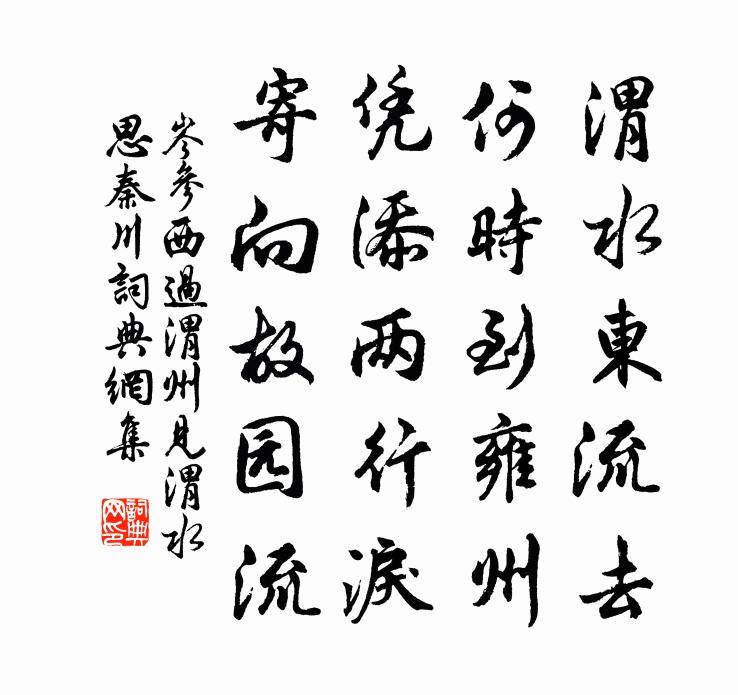 渭水東流去
何時到雍州
凭添两行淚
寄向故园流
岑參西過渭州見渭水
思秦川詞典網集
詞典
网印